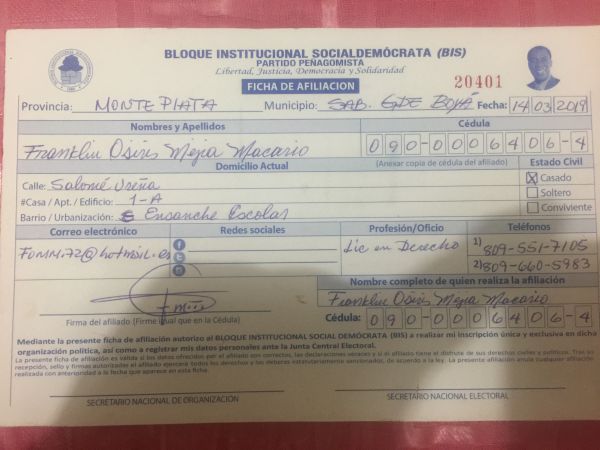 BLOQUE INSTITUCIONAL SOCIALDEMÓCRATA (BIS)
PARTIDO PEÑAGOMISTA
Libertad, Justicia, Democracia y Solidaridad
FICHA DE AFILIACION
20401
Provincia: MONTE PLATA Municipio: SAB. GDE BOYÁ Fecha: 14 03 2019
Nombres y Apellidos Cédula
Franklin Osiris Mejia Macario 090-0006406-4
Domicilio Actual (Anexar copia de cédula del afiliado) Estado Civil
Calle: Salomé Ureña X Casado
#Casa / Apt. / Edificio: 1-A Soltero
Barrio / Urbanización: Ensanche Escolar Conviviente
Correo electrónico Redes sociales Profesión/Oficio Teléfonos
FOMM.72@hotmail.es Lic en Derecho 1) 809-551-7105
2) 809-660-5983
Nombre completo de quien realiza la afiliación
Franklin Osiris Mejia Macario
Firma del afiliado (Firme igual que en la Cédula) Cédula: 090-0006406-4
Mediante la presente ficha de afiliación autorizo el BLOQUE INSTITUCIONAL SOCIAL DEMÓCRATA (BIS) a realizar mi inscripción única y exclusiva en dicha
organización política, así como a registrar mis datos personales ante la Junta Central Electoral.
La presente ficha de afiliación es válida si los datos ofrecidos por el afiliado son correctos, las declaraciones veraces y si el afiliado tiene el disfrute de sus derechos civiles y políticos. Tras su
recepción, sello y firmas autorizadas el afiliado ejercerá todos los derechos y los deberes estatutariamente sancionados, de acuerdo a la ley. La presente afiliación anula cualquier afiliación
realizada con anterioridad a la fecha que aparece en esta ficha.
SECRETARIO NACIONAL DE ORGANIZACIÓN SECRETARIO NACIONAL ELECTORAL